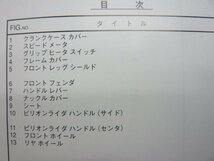 目 次
FIG.NO. タ イ ト ル
1 クランクケース カバー
2 スピード メータ
3 グリップ ヒータ スイッチ
4 フレーム カバー
5 フロント レッグ シールド
6 フロント フェンダ
7 ハンドル レバー
8 ナックル カバー
9 シート
10 ピリオンライダ ハンドル (サイド)
11 ピリオンライダ ハンドル (センタ)
12 フロント ホイール
13 リヤ ホイール